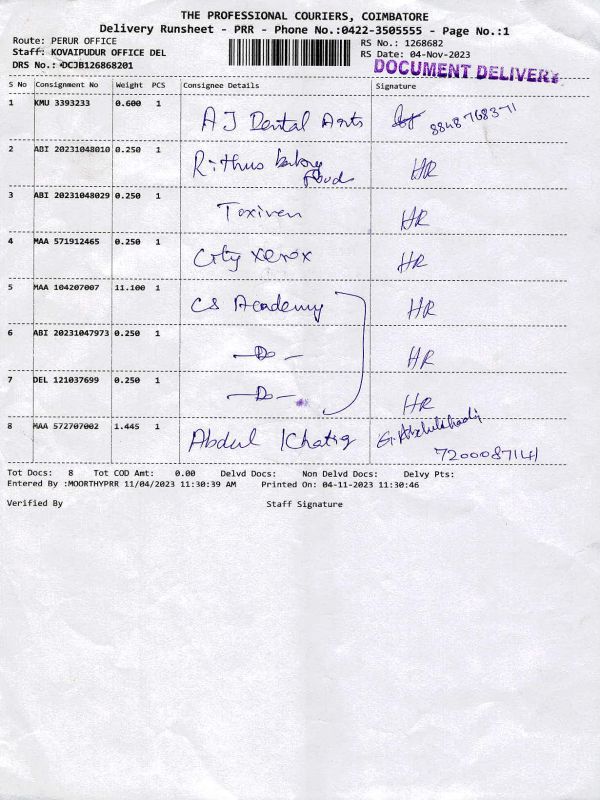 THE PROFESSIONAL COURIERS, COIMBATORE
Delivery Runsheet - PRR - Phone No.:0422-3505555 - Page No.:1
Route: PERUR OFFICE RS No.: 1268682
Staff: KOVAIPUDUR OFFICE DEL RS Date: 04-Nov-2023
DRS No.: DCJB126868201 DOCUMENT DELIVERY
S No Consignment No Weight PCS Consignee Details Signature
1 KMU 3393233 0.600 1 AJ Dental Arts
2 ABI 20231048010 0.250 1 Rithus bakery foods HR
3 ABI 20231048029 0.250 1 Toxiven HR
4 MAA 571912465 0.250 1 City xerox HR
5 MAA 104207007 11.100 1 CS Academy HR
6 ABI 20231047973 0.250 1 -Do- HR
7 DEL 121037699 0.250 1 -Do- HR
8 MAA 572707002 1.445 1 Abdul Khatig 7200087141
Tot Docs: 8 Tot COD Amt: 0.00 Delvd Docs: Non Delvd Docs: Delvy Pts:
Entered By :MOORTHYPRR 11/04/2023 11:30:39 AM Printed On: 04-11-2023 11:30:46
Verified By Staff Signature